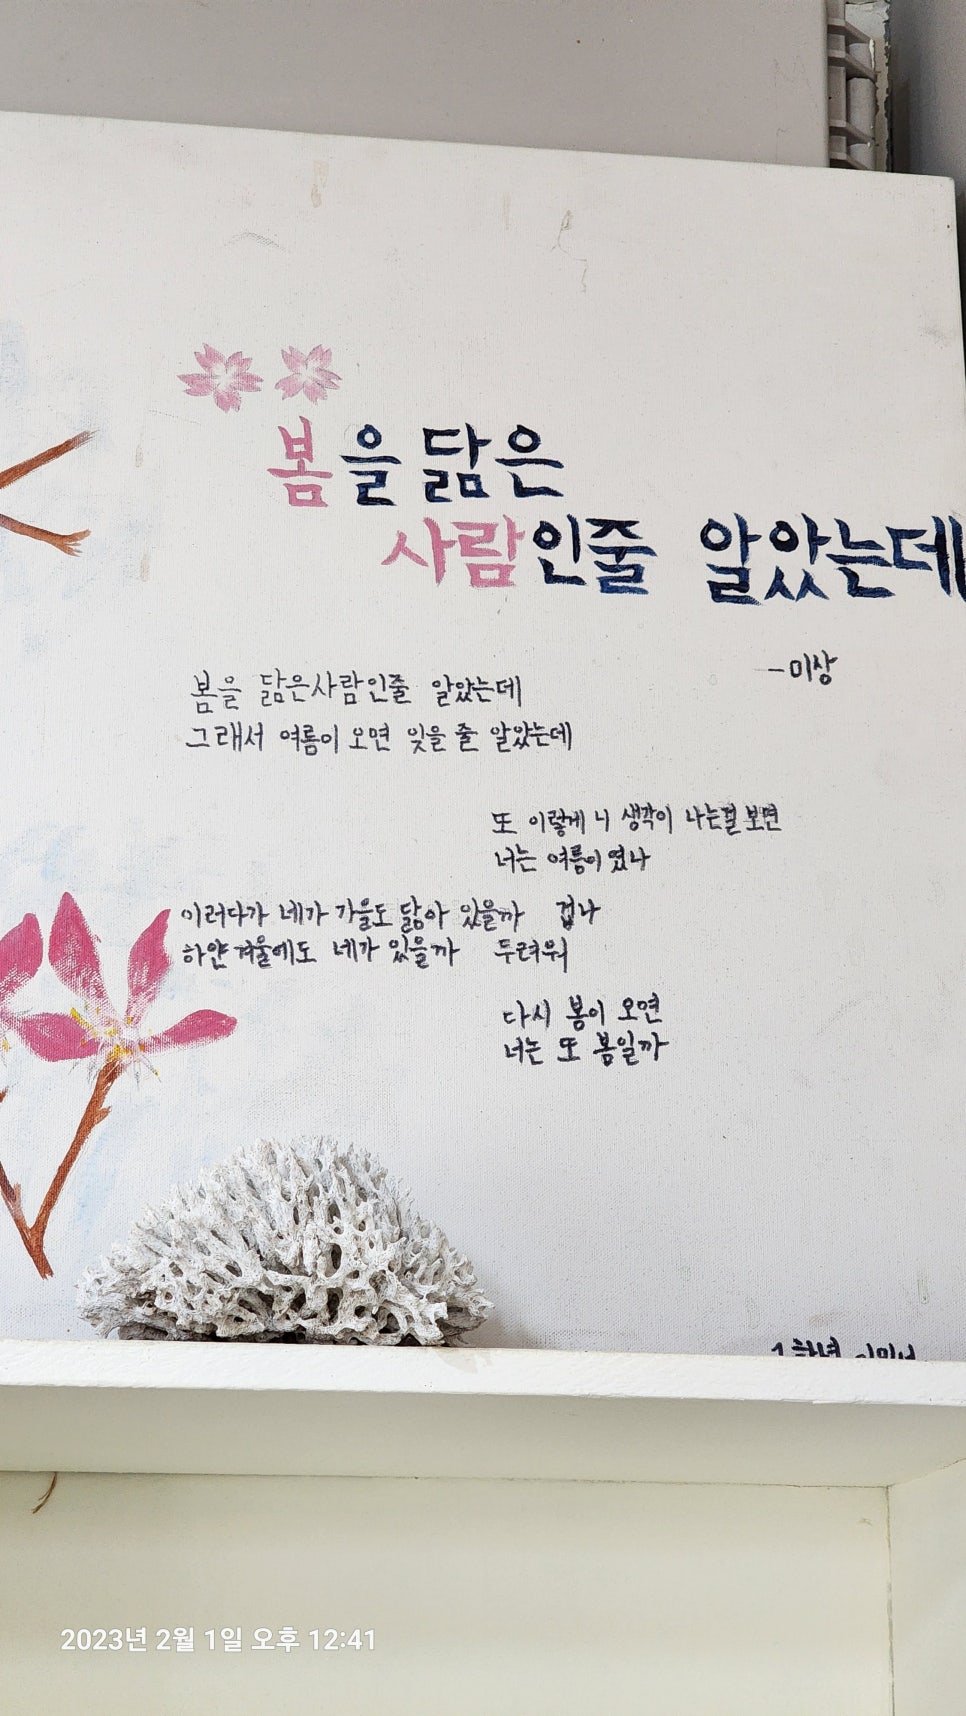 봄을 닮은
사람인줄 알았는데
-미상
봄을 닮은사람인줄 알았는데
그래서 여름이 오면 잊을 줄 알았는데
또 이렇게 니 생각이 나는걸 보면
너는 여름이였나
이러다가 네가 가을도 닮아 있을까 겁나
하얀겨울에도 네가 있을까 두려워
다시 봄이 오면
너는 또 봄일까
1학년
2023년 2월 1일 오후 12:41